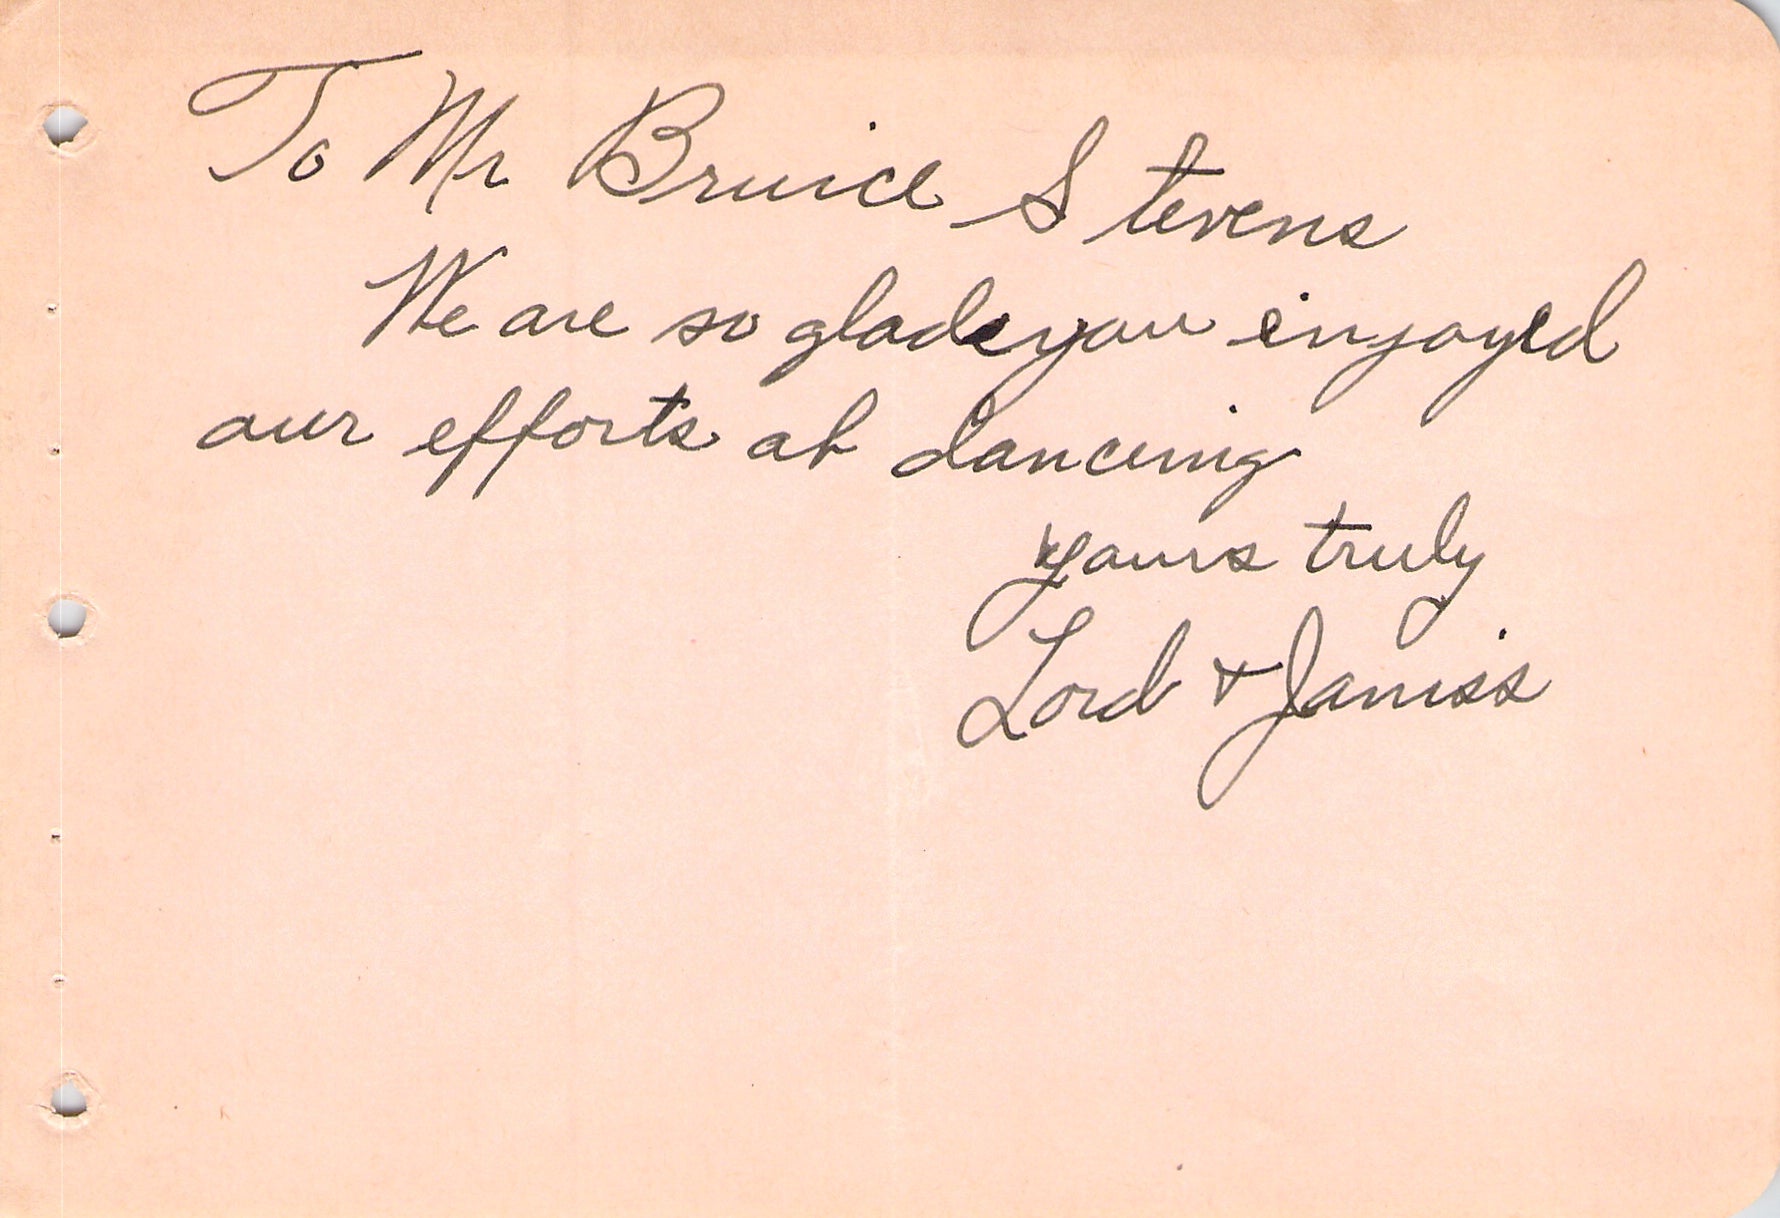 To Mr Bruice Stevens
We are so glad you enjoyed
our efforts at dancing
yours truly
Lord + Janiss